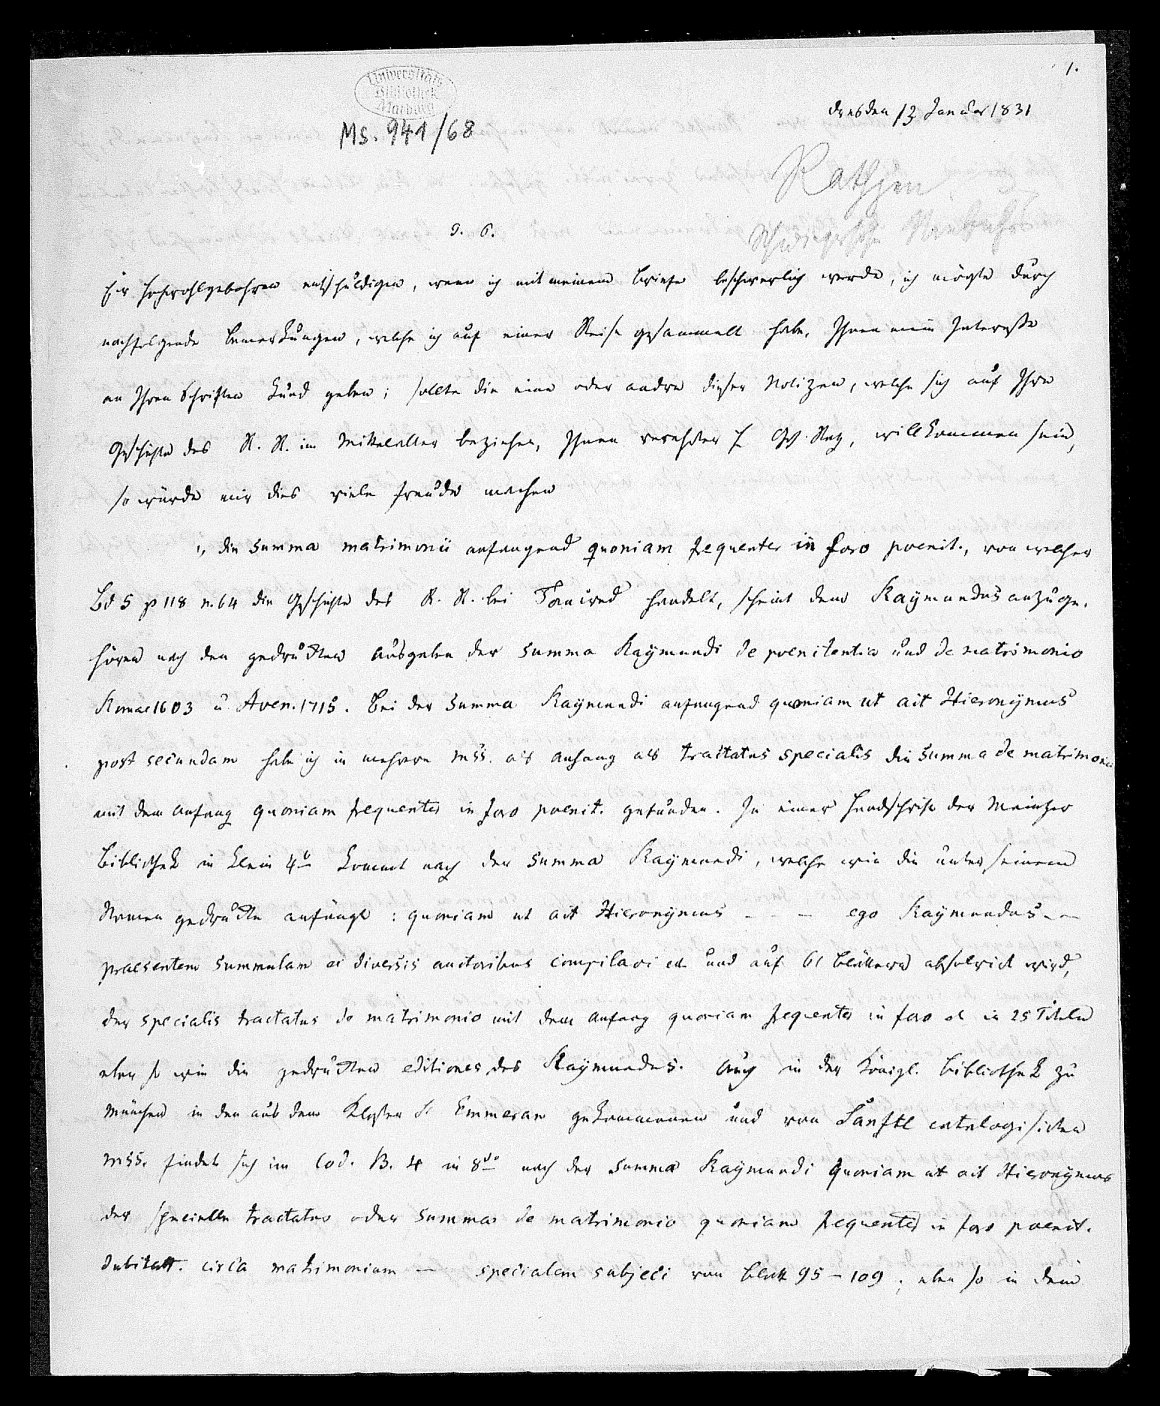 1.
Universitäts
Bibliothek
Marburg
Ms. 941/68
Dresden 13 Januar 1831
Rathjen
Schwiegersohn Niebuhrs
d. 6.
Ew Hochwohlgebohren entschuldigen, wenn ich mit meinem Briefe beschwerlich werde, ich mögte durch
nachfolgende Bemerkungen, welche ich auf einer Reise gesammelt habe, Ihnen mein Interesse
an Ihren Schriften kund geben; sollte die eine oder andre dieser Notizen, welche sich auf Ihre
Geschichte des R. R. im Mittelalter beziehen, Ihnen verehrter H Gh. Rg, willkommen sein,
so würde mir dies viele Freude machen
1, die Summa matrimonii anfangend quoniam frequenter in foro poenit., von welcher
Bd 5 p 118 n. 64 die Geschichte des R. R. bei Tancred handelt, scheint dem Raymundus anzuge-
hören nach den gedruckten Ausgaben der Summa Raymundi de poenitentia und de matrimonio
Romae 1603 u Aven. 1715. Bei der Summa Raymundi anfangend quoniam ut ait Hieronymus
post secundam habe ich in mehrern mss. als Anhang als tractatus specialis die Summa de matrimonio
mit dem Anfang quoniam frequenter in foro poenit. gefunden. In einer Handschrift der Mainzer
Bibliothek in klein 4to kommt nach der Summa Raymundi, welche wie die unter seinem
Namen gedruckte anfängt: quoniam ut ait Hieronymus - - - ego Raymundus - -
praesentem summulam ex diversis auctoribus compilavi etc und auf 61 Blättern absolvirt wird,
der specialis tractatus de matrimonio mit dem Anfang quoniam frequenter in foro et in 25 Titeln
eben so wie die gedruckten editiones des Raymundus. Auch in der Königl. Bibliothek zu
München in den aus dem Kloster St Emmeran gekommenen und von Sanftl catalogisirten
mss. findet sich im Cod. B. 4 in 8vo nach der Summa Raymundi Quoniam ut ait Hieronymus
der specielle tractatus oder Summa de matrimonio quoniam frequenter in foro poenit.
dubitatt. circa matrimonium — specialem subjeci von Blatt 95 - 109; eben so in dem